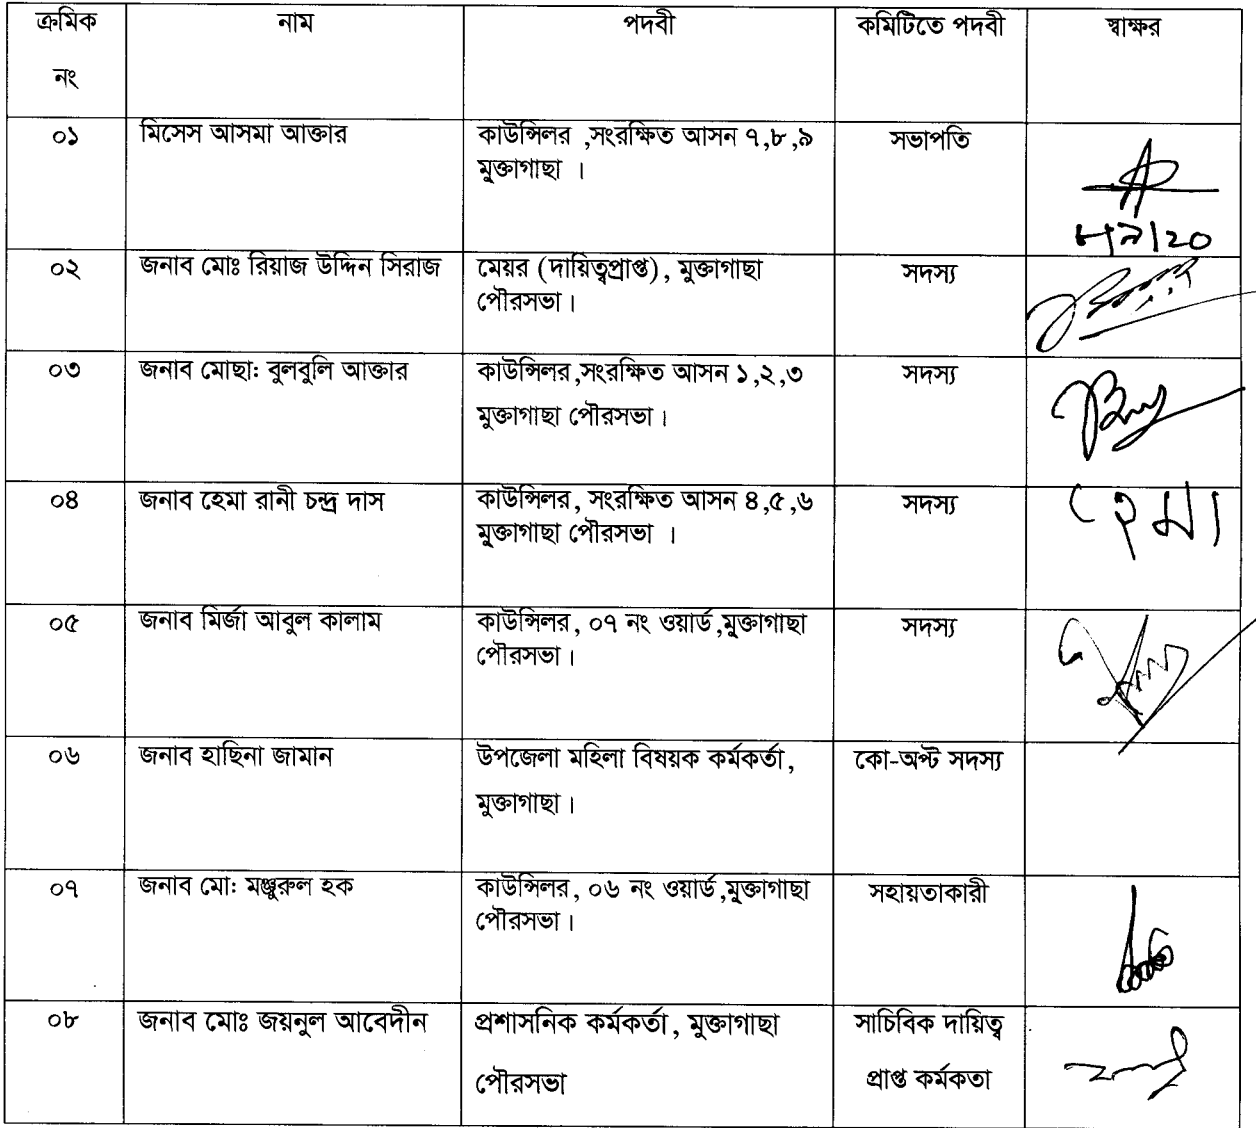 ক্রমিক নং নাম পদবী কমিটিতে পদবী স্বাক্ষর
০১ মিসেস আসমা আক্তার কাউন্সিলর ,সংরক্ষিত আসন ৭,৮,৯ সভাপতি
মুক্তাগাছা ।
৮/৯/২০
০২ জনাব মোঃ রিয়াজ উদ্দিন সিরাজ মেয়র (দায়িত্বপ্রাপ্ত), মুক্তাগাছা সদস্য
পৌরসভা।
০৩ জনাব মোছা: বুলবুলি আক্তার কাউন্সিলর,সংরক্ষিত আসন ১,২,৩ সদস্য
মুক্তাগাছা পৌরসভা।
০৪ জনাব হেমা রানী চন্দ্র দাস কাউন্সিলর, সংরক্ষিত আসন ৪,৫,৬ সদস্য হেমা
মুক্তাগাছা পৌরসভা ।
০৫ জনাব মির্জা আবুল কালাম কাউন্সিলর, ০৭ নং ওয়ার্ড,মুক্তাগাছা সদস্য
পৌরসভা।
০৬ জনাব হাছিনা জামান উপজেলা মহিলা বিষয়ক কর্মকর্তা, কো-অপ্ট সদস্য
মুক্তাগাছা।
০৭ জনাব মো: মঞ্জুরুল হক কাউন্সিলর, ০৬ নং ওয়ার্ড,মুক্তাগাছা সহায়তাকারী
পৌরসভা।
০৮ জনাব মোঃ জয়নুল আবেদীন প্রশাসনিক কর্মকর্তা, মুক্তাগাছা সাচিবিক দায়িত্ব
পৌরসভা প্রাপ্ত কর্মকতা